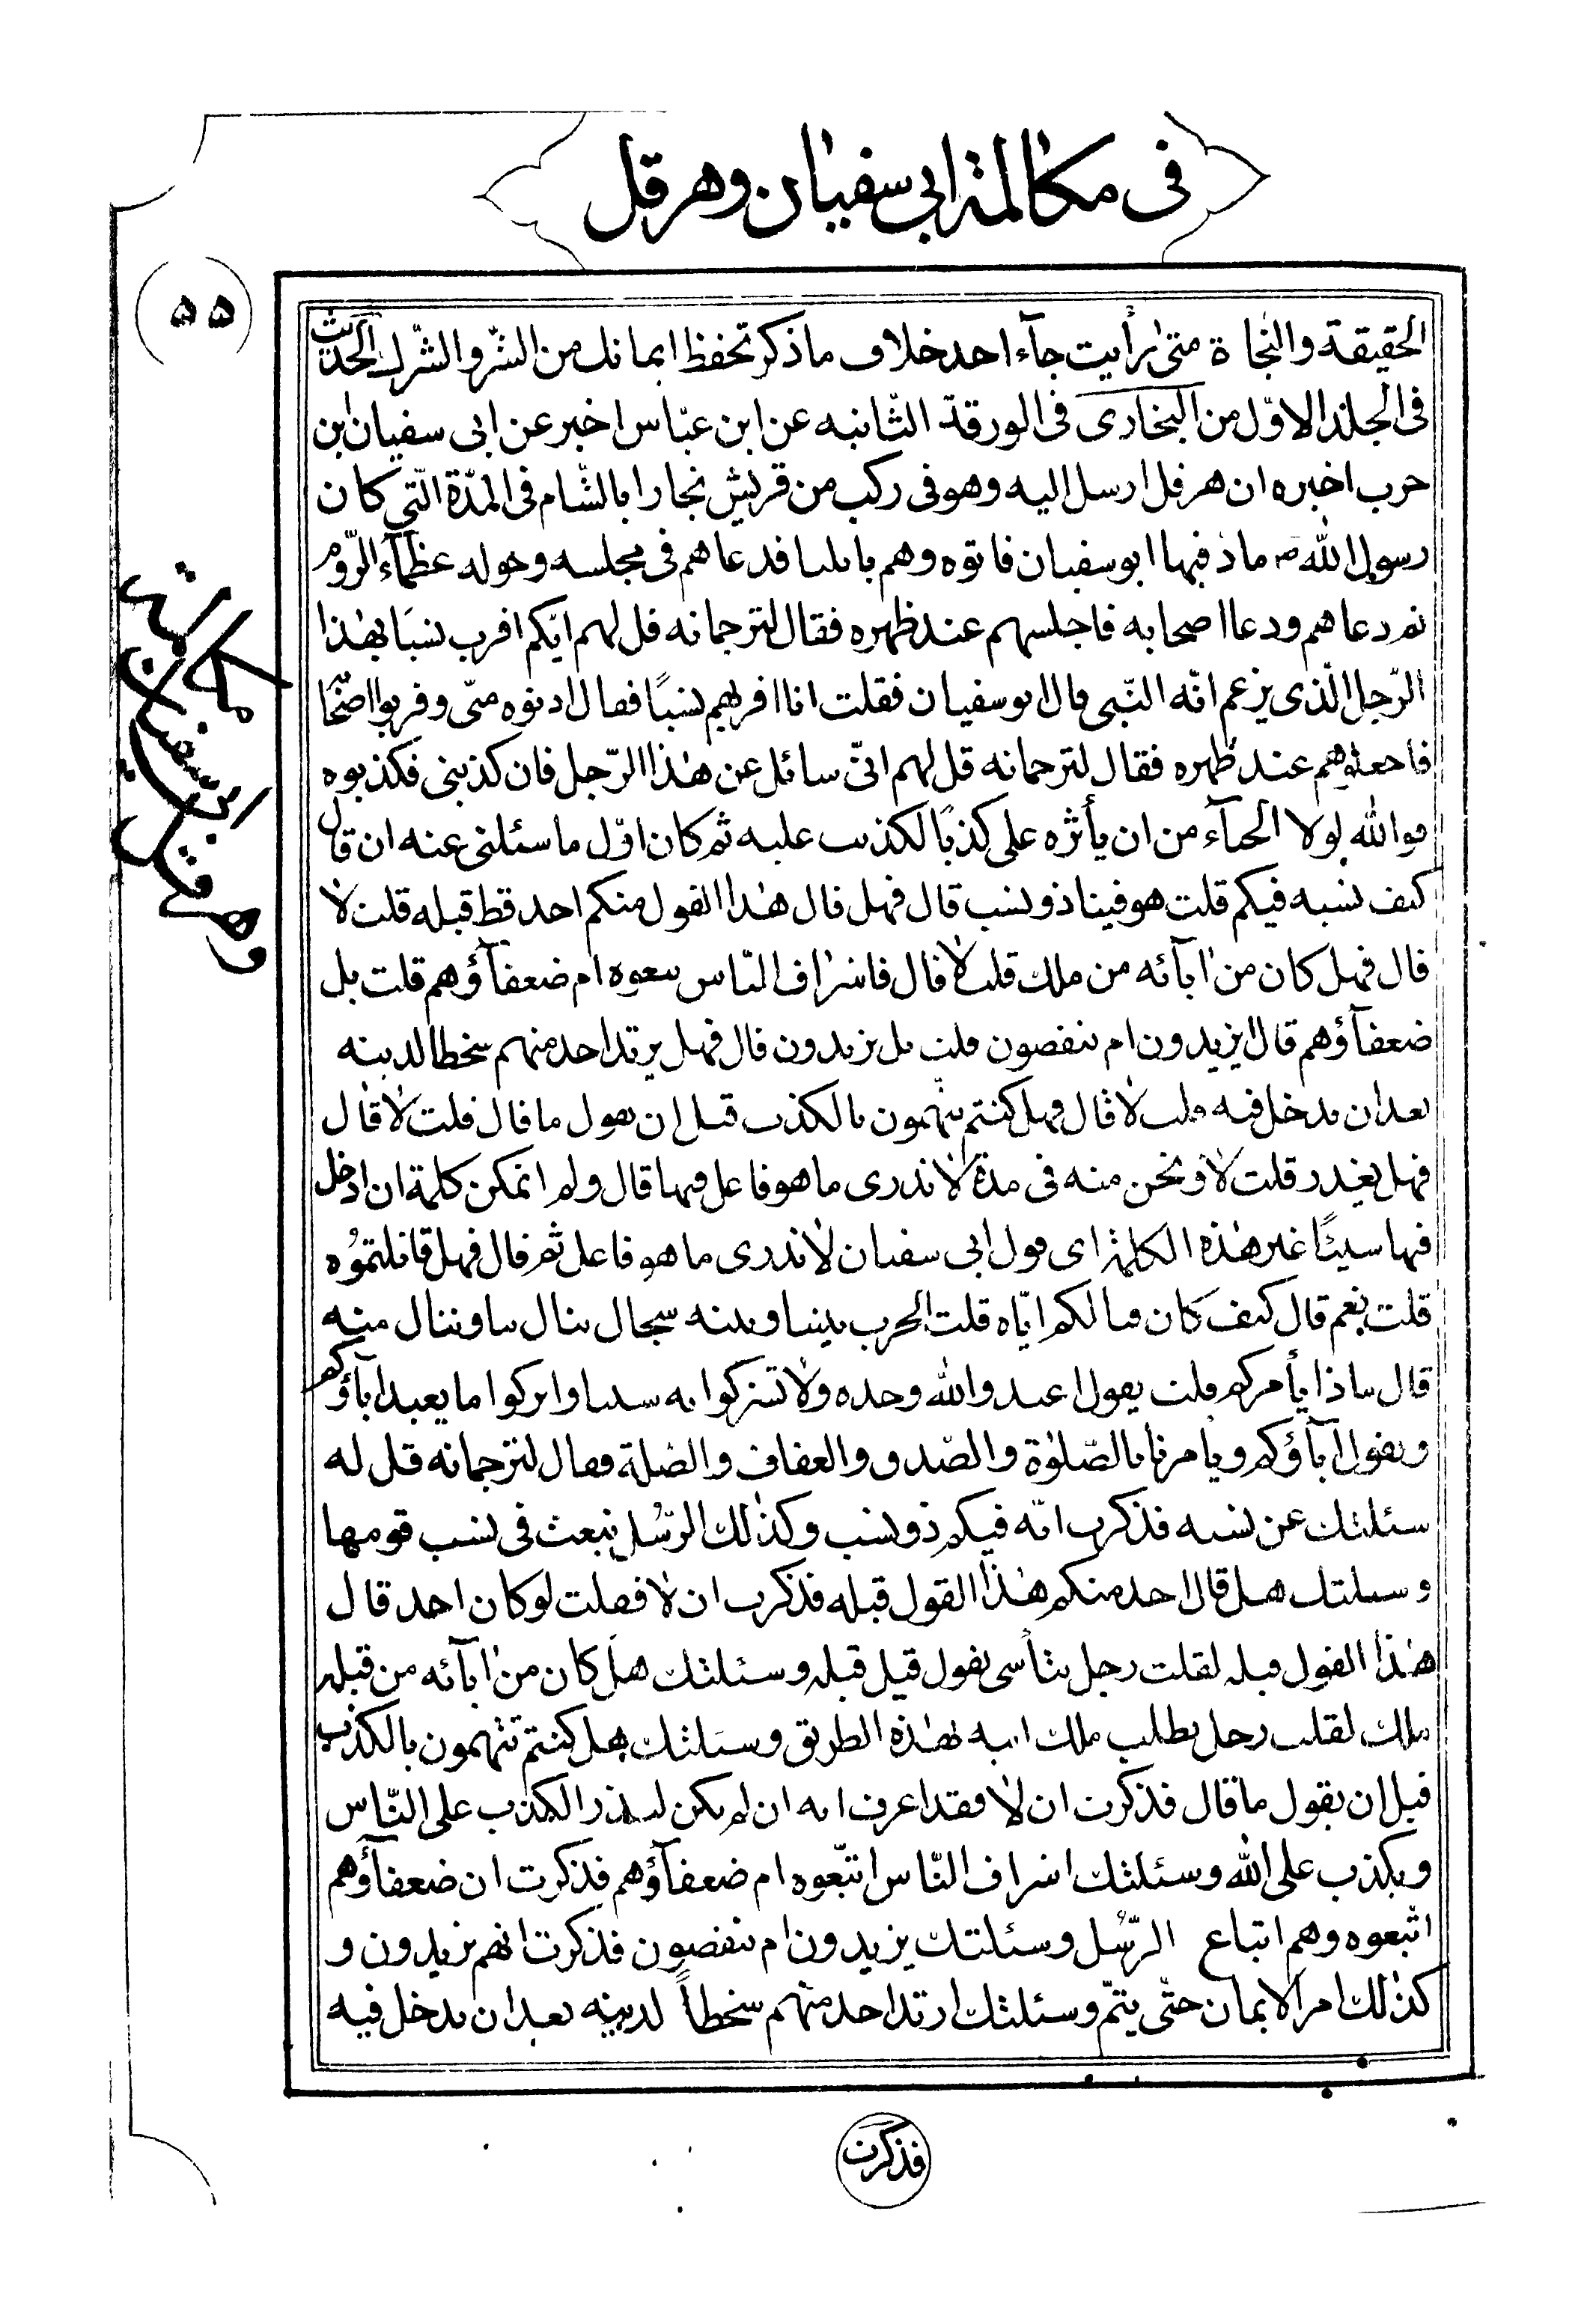 فى مكالمة ابى سفيان وهرقل
(۵۵)
الحقيقة والنجاة متى رأيت جآء احد خلاف ما ذكر تحفظ ايمانك من الشر والشرك الحديث
فى الجلد الاوّل من البخارى فى الورقة الثّانيه عن ابن عبّاس اخبر عن ابى سفيان بن
حرب اخبره ان هرقل ارسل اليه وهو فى ركب من قريش تجارا بالشّام فى المدّة الّتى كان
رسول الله ص ماذ فيها ابو سفيان فاتوه وهم بايليا فدعاهم فى مجلسه وحوله عظمآء الرّوم
ثم دعاهم ودعا اصحابه فاجلسهم عند ظهره فقال لترجمانه قل لهم ايّكم اقرب نسبًا بهذا
الرّجل الّذى يزعم انّه النّبى قال ابو سفيان فقلت انا اقربهم نسبًا فقال ادنوه منّى وقربوا اصحا
فاجعلوهم عند ظهره فقال لترجمانه قل لهم انّى سائل عن هذا الرّجل فان كذبنى فكذبوه
فوالله لولا الحيآء من ان يأثره على كذبًا لكذبت عليه ثم كان اوّل ما سئلنى عنه ان قال
كيف نسبه فيكم قلت هو فينا ذو نسب قال فهل قال هذا القول منكم احد قط قبله قلت لا
قال فهل كان من آبائه من ملك قلت لا قال فاشراف النّاس يتبعوه ام ضعفآؤهم قلت بل
ضعفآؤهم قال ايزيدون ام ينقصون قلت بل يزيدون قال فهل يرتد احد منهم سخطا لدينه
بعد ان يدخل فيه قلت لا قال فهل كنتم تتهمون بالكذب قبل ان يقول ما قال قلت لا قال
فهل يغدر قلت لا ونحن منه فى مدة لا ندرى ما هو فاعل فيها قال ولم اتمكن كلمة ان ادخل
فيها شيئًا غير هذه الكلمة اى قول ابى سفيان لا ندرى ما هو فاعل ثم قال فهل قاتلتموه
قلت نعم قال كيف كان قتالكم ايّاه قلت الحرب بيننا وبينه سجال ينال منا وننال منه
قال ماذا يأمركم قلت يقول اعبدوا الله وحده ولا تشركوا به شيئا واتركوا ما يعبد آباؤكم
ويقول آبآؤكم ويامرنا بالصّلوة والصّدق والعفاف والصّلة فقال لترجمانه قل له
سئلتك عن نسبه فذكرت انّه فيكم ذو نسب وكذلك الرّسل تبعث فى نسب قومها
وسئلتك هل قال احد منكم هذا القول قبله فذكرت ان لا فقلت لو كان احد قال
هذا القول قبله لقلت رجل يتأسى بقول قيل قبله وسئلتك هل كان من آبائه من قبله
ملك لقلت رجل يطلب ملك ابيه بهذه الطريق وسئلتك هل كنتم تتهمون بالكذب
قبل ان يقول ما قال فذكرت ان لا فقد اعرف انه ان لم يكن ليذر الكذب على النّاس
ويكذب على الله وسئلتك اشراف النّاس اتّبعوه ام ضعفآؤهم فذكرت ان ضعفآؤهم
اتّبعوه وهم اتباع الرّسل وسئلتك يزيدون ام ينقصون فذكرت انهم يزيدون و
كذلك امر الايمان حتّى يتمّ وسئلتك ارتد احد منهم سخطاً لدينه بعد ان يدخل فيه
مكالمة
ابى سفيان
وهرقل
فذكرت